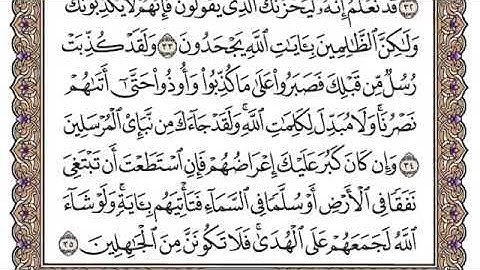 ٣٢ قَدْ نَعْلَمُ إِنَّهُۥ لَيَحْزُنُكَ ٱلَّذِى يَقُولُونَ فَإِنَّهُمْ لَا يُكَذِّبُونَكَ
وَلَٰكِنَّ ٱلظَّٰلِمِينَ بِـَٔايَٰتِ ٱللَّهِ يَجْحَدُونَ ٣٣ وَلَقَدْ كُذِّبَتْ
رُسُلٌ مِّن قَبْلِكَ فَصَبَرُوا۟ عَلَىٰ مَا كُذِّبُوا۟ وَأُوذُوا۟ حَتَّىٰٓ أَتَىٰهُمْ
نَصْرُنَا ۚ وَلَا مُبَدِّلَ لِكَلِمَٰتِ ٱللَّهِ ۚ وَلَقَدْ جَآءَكَ مِن نَّبَإِى۟ ٱلْمُرْسَلِينَ
٣٤ وَإِن كَانَ كَبُرَ عَلَيْكَ إِعْرَاضُهُمْ فَإِنِ ٱسْتَطَعْتَ أَن تَبْتَغِىَ
نَفَقًا فِى ٱلْأَرْضِ أَوْ سُلَّمًا فِى ٱلسَّمَآءِ فَتَأْتِيَهُم بِـَٔايَةٍ ۚ وَلَوْ شَآءَ
ٱللَّهُ لَجَمَعَهُمْ عَلَى ٱلْهُدَىٰ ۚ فَلَا تَكُونَنَّ مِنَ ٱلْجَٰهِلِينَ ٣٥